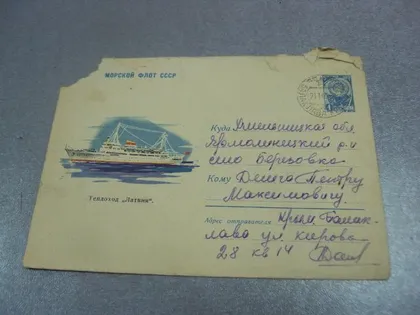 МОРСКОЙ ФЛОТ СССР
Куда Хмельницкая обл
Ярмолинецкий р-н
село
Кому Петру
Максимовичу
Теплоход „Латвия“.
Адрес отправителя Крым Балак-
лава ул кирова
28 кв 14